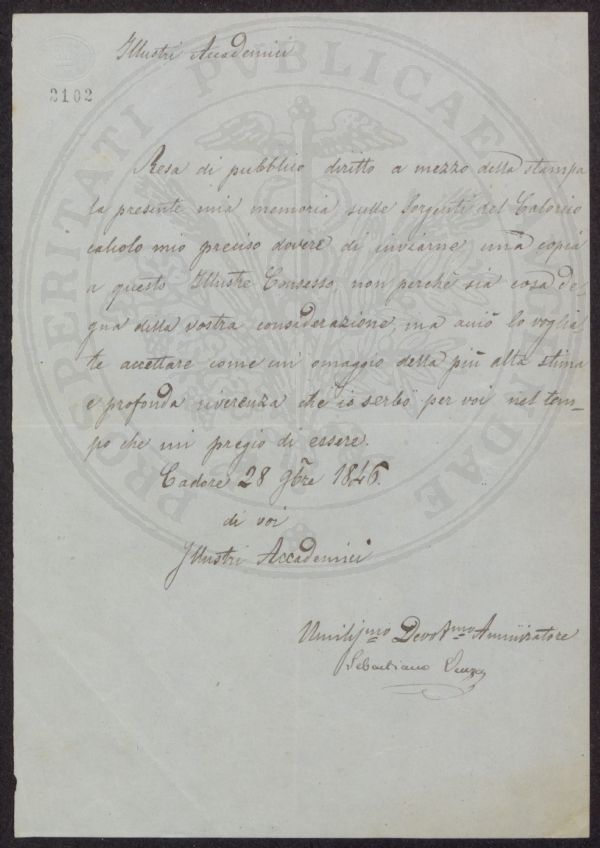 Illustri Accademici
2102
PROSPERITATI PVBLICAE AVGENDAE
Resa di pubblico diritto a mezzo della stampa
la presente mia memoria sulle Sorgenti del Calorico
calcolo mio preciso dovere di inviarne una copia
a questo Illustre Consesso, non perchè sia cosa de-
gna della vostra considerazione, ma acciò lo voglia-
te accettare come un omaggio della più alta stima
e profonda riverenza che io serbo per voi nel tem-
po che mi pregio di essere.
Cadore 28 9bre 1846.
di voi
Illustri Accademici
Umilissmo Devotmo Ammiratore
Sebastiano